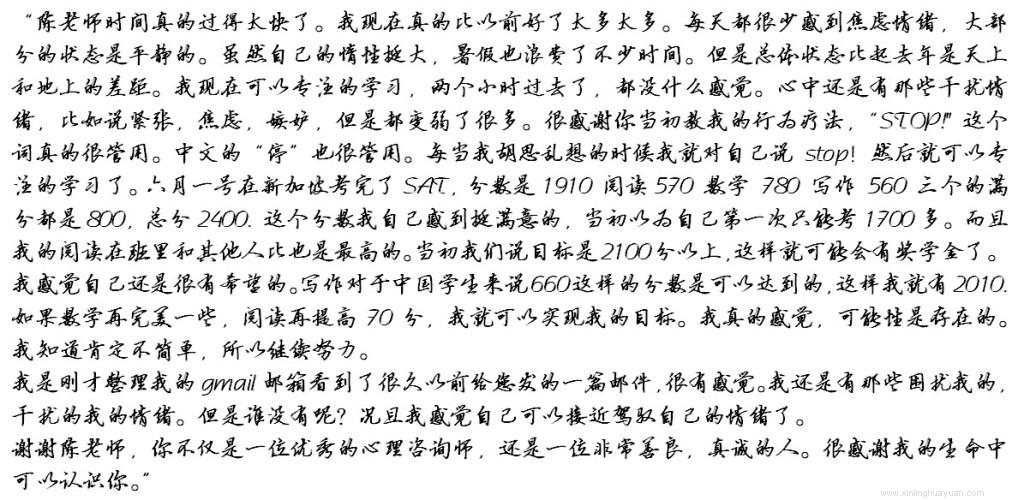 “陈老师时间真的过得太快了。我现在真的比以前好了太多太多。每天都很少感到焦虑情绪，大部
分的状态是平静的。虽然自己的惰性挺大，暑假也浪费了不少时间。但是总体状态比起去年是天上
和地上的差距。我现在可以专注的学习，两个小时过去了，都没什么感觉。心中还是有那些干扰情
绪，比如说紧张，焦虑，嫉妒，但是都变弱了很多。很感谢你当初教我的行为疗法，“STOP!”这个
词真的很管用。中文的“停”也很管用。每当我胡思乱想的时候我就对自己说 stop！然后就可以专
注的学习了。六月一号在新加坡考完了 SAT，分数是 1910 阅读 570 数学 780 写作 560 三个的满
分都是 800，总分 2400. 这个分数我自己感到挺满意的，当初以为自己第一次只能考 1700 多。而且
我的阅读在班里和其他人比也是最高的。当初我们说目标是2100分以上，这样就可能会有奖学金了。
我感觉自己还是很有希望的。写作对于中国学生来说660这样的分数是可以达到的，这样我就有 2010.
如果数学再完美一些，阅读再提高 70 分，我就可以实现我的目标。我真的感觉，可能性是存在的。
我知道肯定不简单，所以继续努力。
我是刚才整理我的 gmail 邮箱看到了很久以前给您发的一篇邮件，很有感觉。我还是有那些困扰我的，
干扰的我的情绪。但是谁没有呢？况且我感觉自己可以接近驾驭自己的情绪了。
谢谢陈老师，你不仅是一位优秀的心理咨询师，还是一位非常善良，真诚的人。很感谢我的生命中
可以认识你。”
www.xinlinghuayuan.com